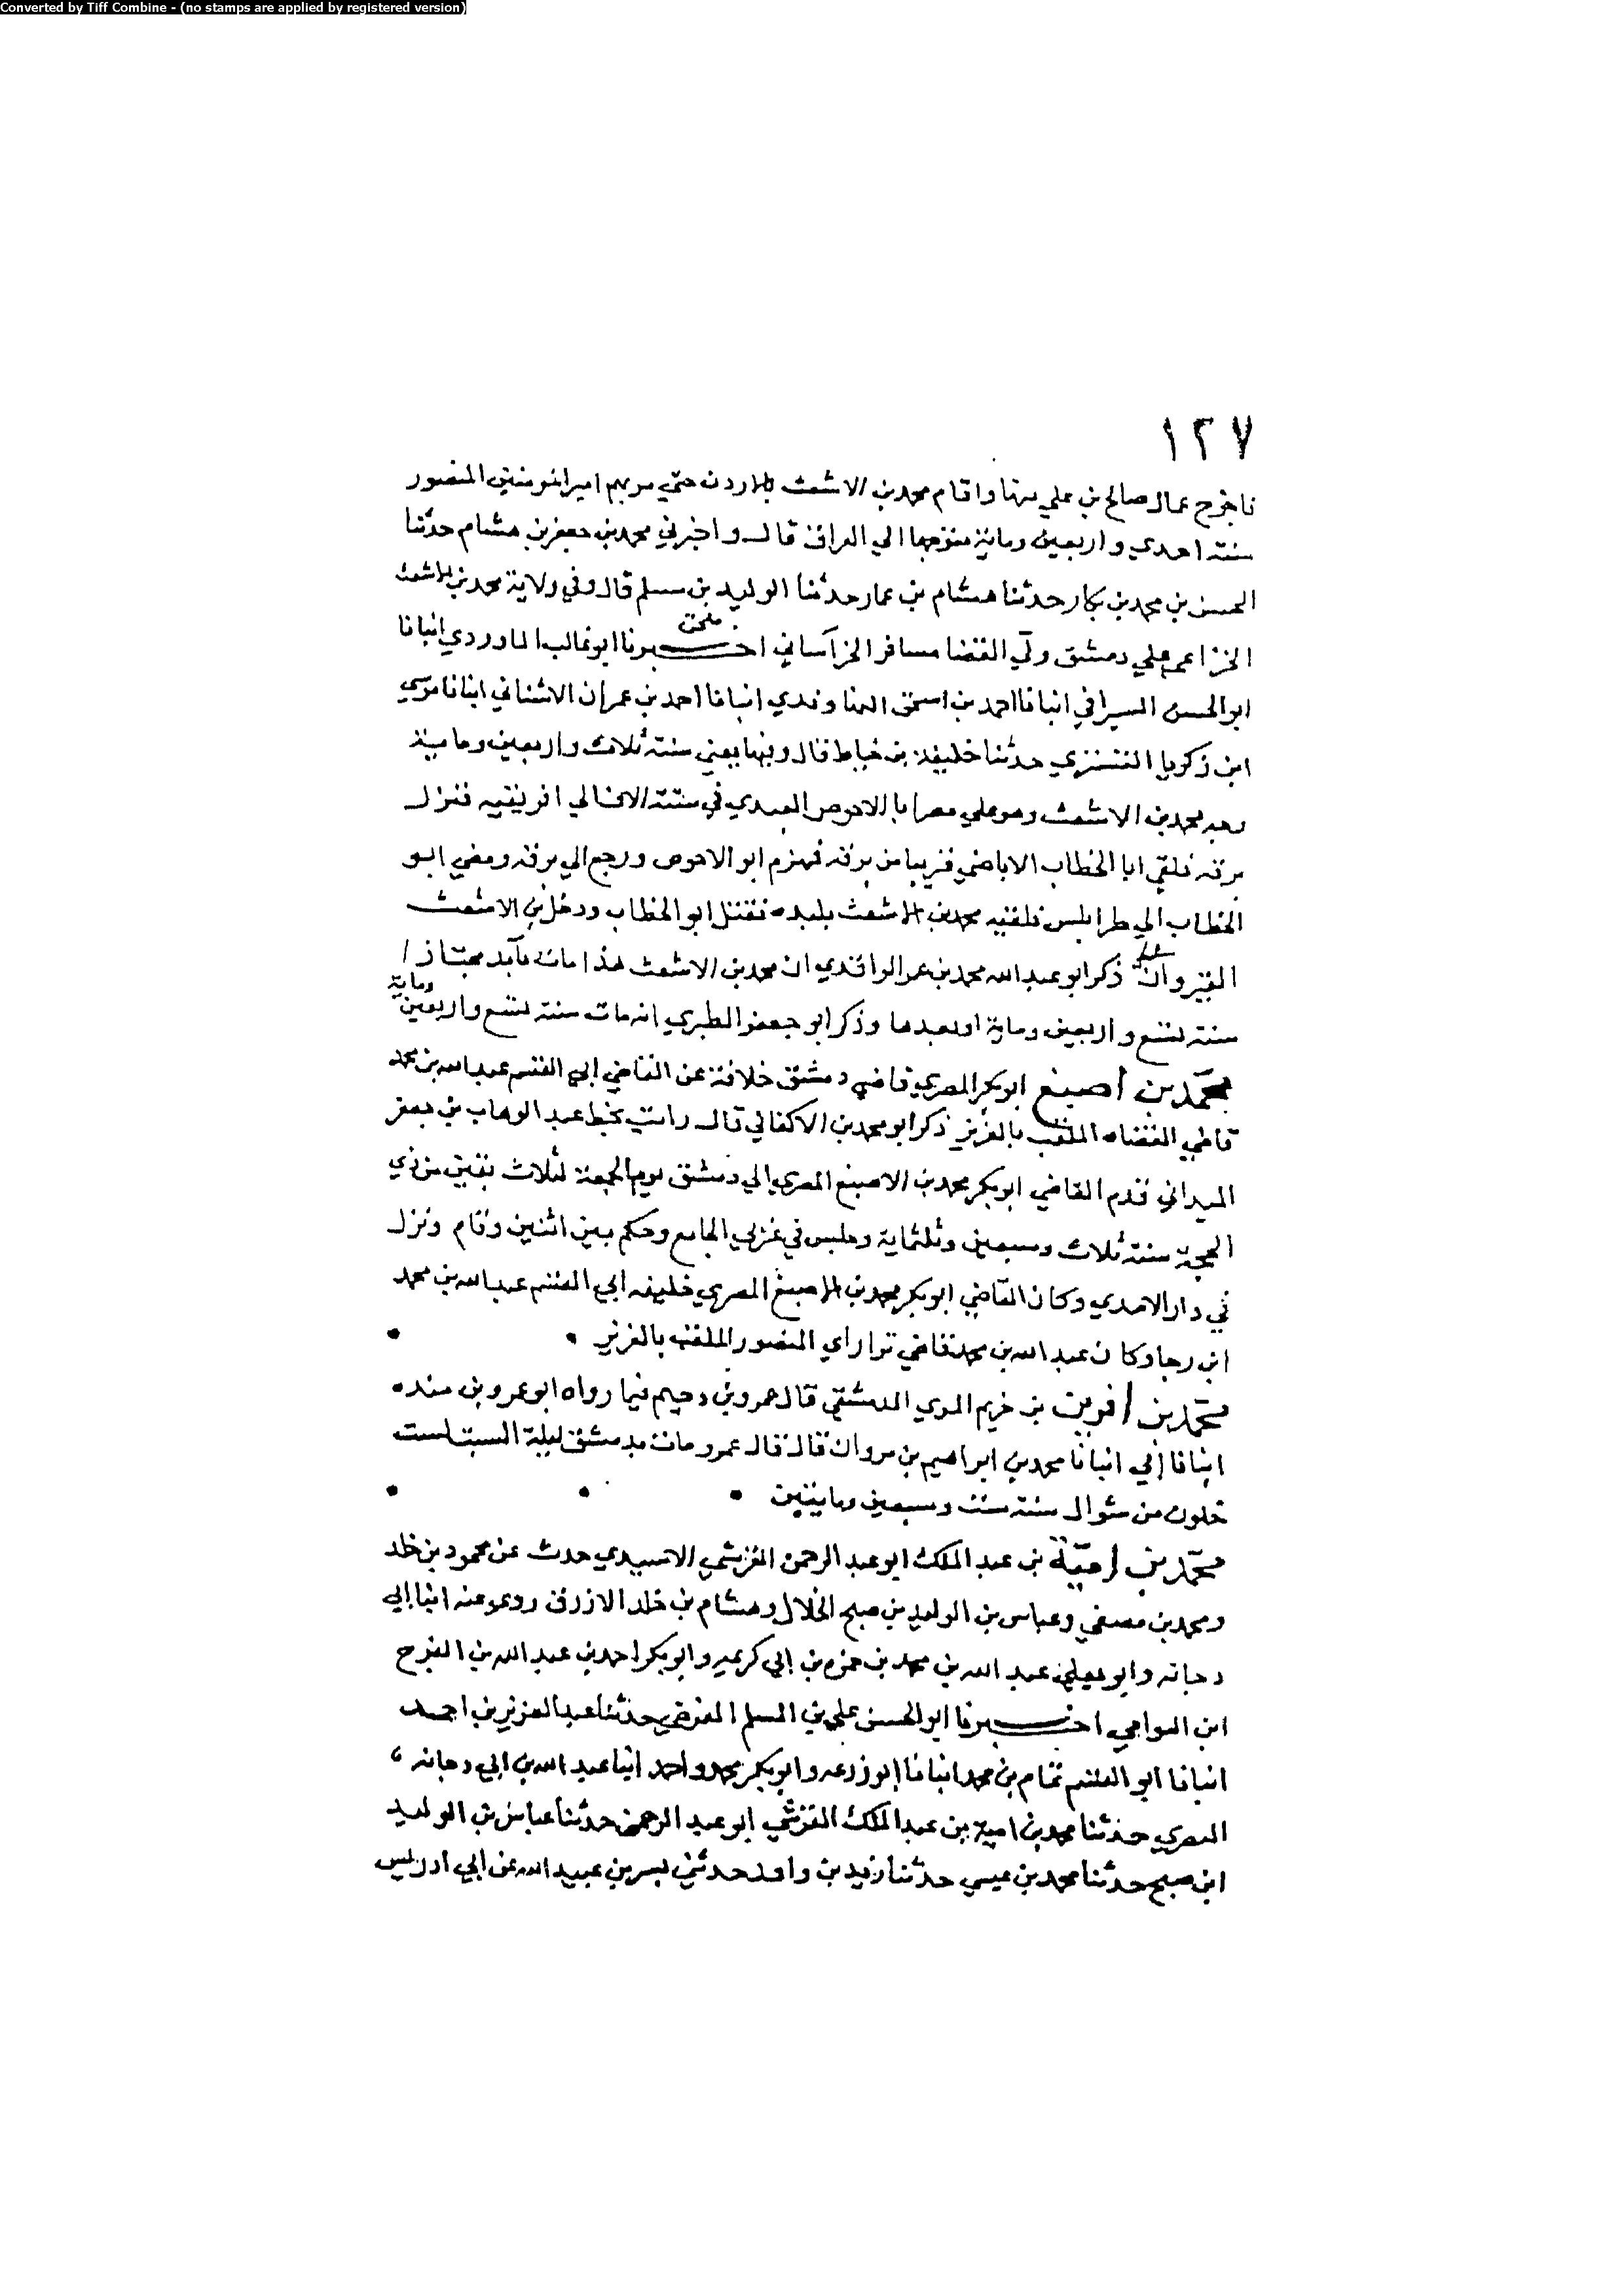 Converted by Tiff Combine - (no stamps are applied by registered version)
١٢٧
فاخرج عمال صالح بن علي منها واقام محمد بن الاشعث بالاردن حتي مر بهم امير المومنين المنصور
سنة احدي واربعين وماية متوجها الي العراق قال واخبرني محمد بن جعفر بن هشام حدثنا
الحسن بن محمد بن بكار حدثنا هشام بن عمار حدثنا الوليد بن مسلم قال وفي ولاية محمد بن الاشعث
الخزاعي علي دمشق ولي القضا مسافر الخراساني ملحق اخبرنا ابو غالب الماوردي انبانا
ابو الحسن السيرافي انبانا احمد بن اسحق النهاوندي انبانا احمد بن عمران الاشناني انبانا موسي
ابن زكريا التستري حدثنا خليفة بن خياط قال وفيها يعني سنة ثلاث واربعين وماية
وجه محمد بن الاشعث وهو علي مصر ابا الاحوص العبدي في ستة الاف الي افريقيه فنزل
برقه فلقي ابا الخطاب الاباضي قريبا من برقه فهزم ابو الاحوص ورجع الي برقه ومضي ابو
الخطاب الي طرابلس فلقيه محمد بن الاشعث بلبده فقتل ابو الخطاب ودخل بن الاشعث
القيروان ذكر ابو عبد الله محمد بن عمر الواقدي ان محمد بن الاشعث هذا مات بآمد مجتازا
سنة تسع واربعين وماية او بعدها وذكر ابو جعفر الطبري انه مات سنة تسع واربعين وماية
محمد بن اصبغ ابو بكر المصري قاضي دمشق خلافة عن القاضي ابي القسم عبد الله بن محمد
قاضي القضاه الملقب بالعزيز ذكر ابو محمد بن الاكفاني قال رايت بخط عبد الوهاب بن جعفر
الميداني قدم القاضي ابو بكر محمد بن الاصبغ المصري الي دمشق يوم الجمعة لثلاث بقين من ذي
الحجة سنة ثلاث وسبعين وثلثماية وجلس في غربي الجامع وحكم بين اثنين وقام ونزل
في دار الاحمدي وكان القاضي ابو بكر محمد بن الاصبغ المصري خليفه ابي القسم عبد الله بن محمد
ابن رجا وكان عبد الله بن محمد قاضي نزار اي المنصور الملقب بالعزيز
محمد بن بن خريم المري الدمشقي قال عمرو بن دحيم فيما رواه ابو عمرو بن منده
انبانا ابي انبانا محمد بن ابراهيم بن مروان قال قال عمرو مات بدمشق ليلة السبت لست
خلون من شوال سنة ست وسبعين ومايتين
محمد بن امية بن عبد الملك ابو عبد الرحمن القرشي الاسيدي حدث عن محمود بن خلد
ومحمد بن مصفي وعباس بن الوليد بن صبح الخلال وهشام بن خلد الازرق روي عنه ابنا ابي
دجانه وابو يعلي عبد الله بن محمد بن حمزه بن ابي كريمه وابو بكر احمد بن عبد الله بن الفرج
ابن البرامي اخبرنا ابو الحسن علي بن المسلم الفرضي حدثنا عبد العزيز بن احمد
انبانا ابو القسم تمام بن محمد انبانا ابو زرعه وابو بكر محمد واحمد ابنا عبد الله بن ابي دجانه
النصري حدثنا محمد بن امية بن عبد الملك القرشي ابو عبد الرحمن حدثنا عباس بن الوليد
ابن صبح حدثنا محمد بن عيسي حدثنا زيد بن واقد حدثني بسر بن عبيد الله عن ابي ادريس